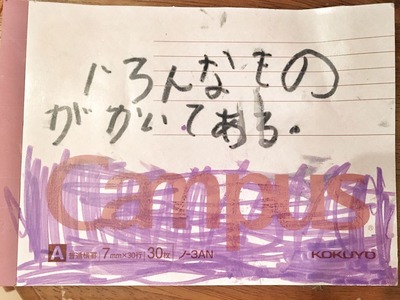 いろんなもの
がかいてある.
Campus
A 普通横罫 7mm×30行 30枚 ノ-3AN KOKUYO